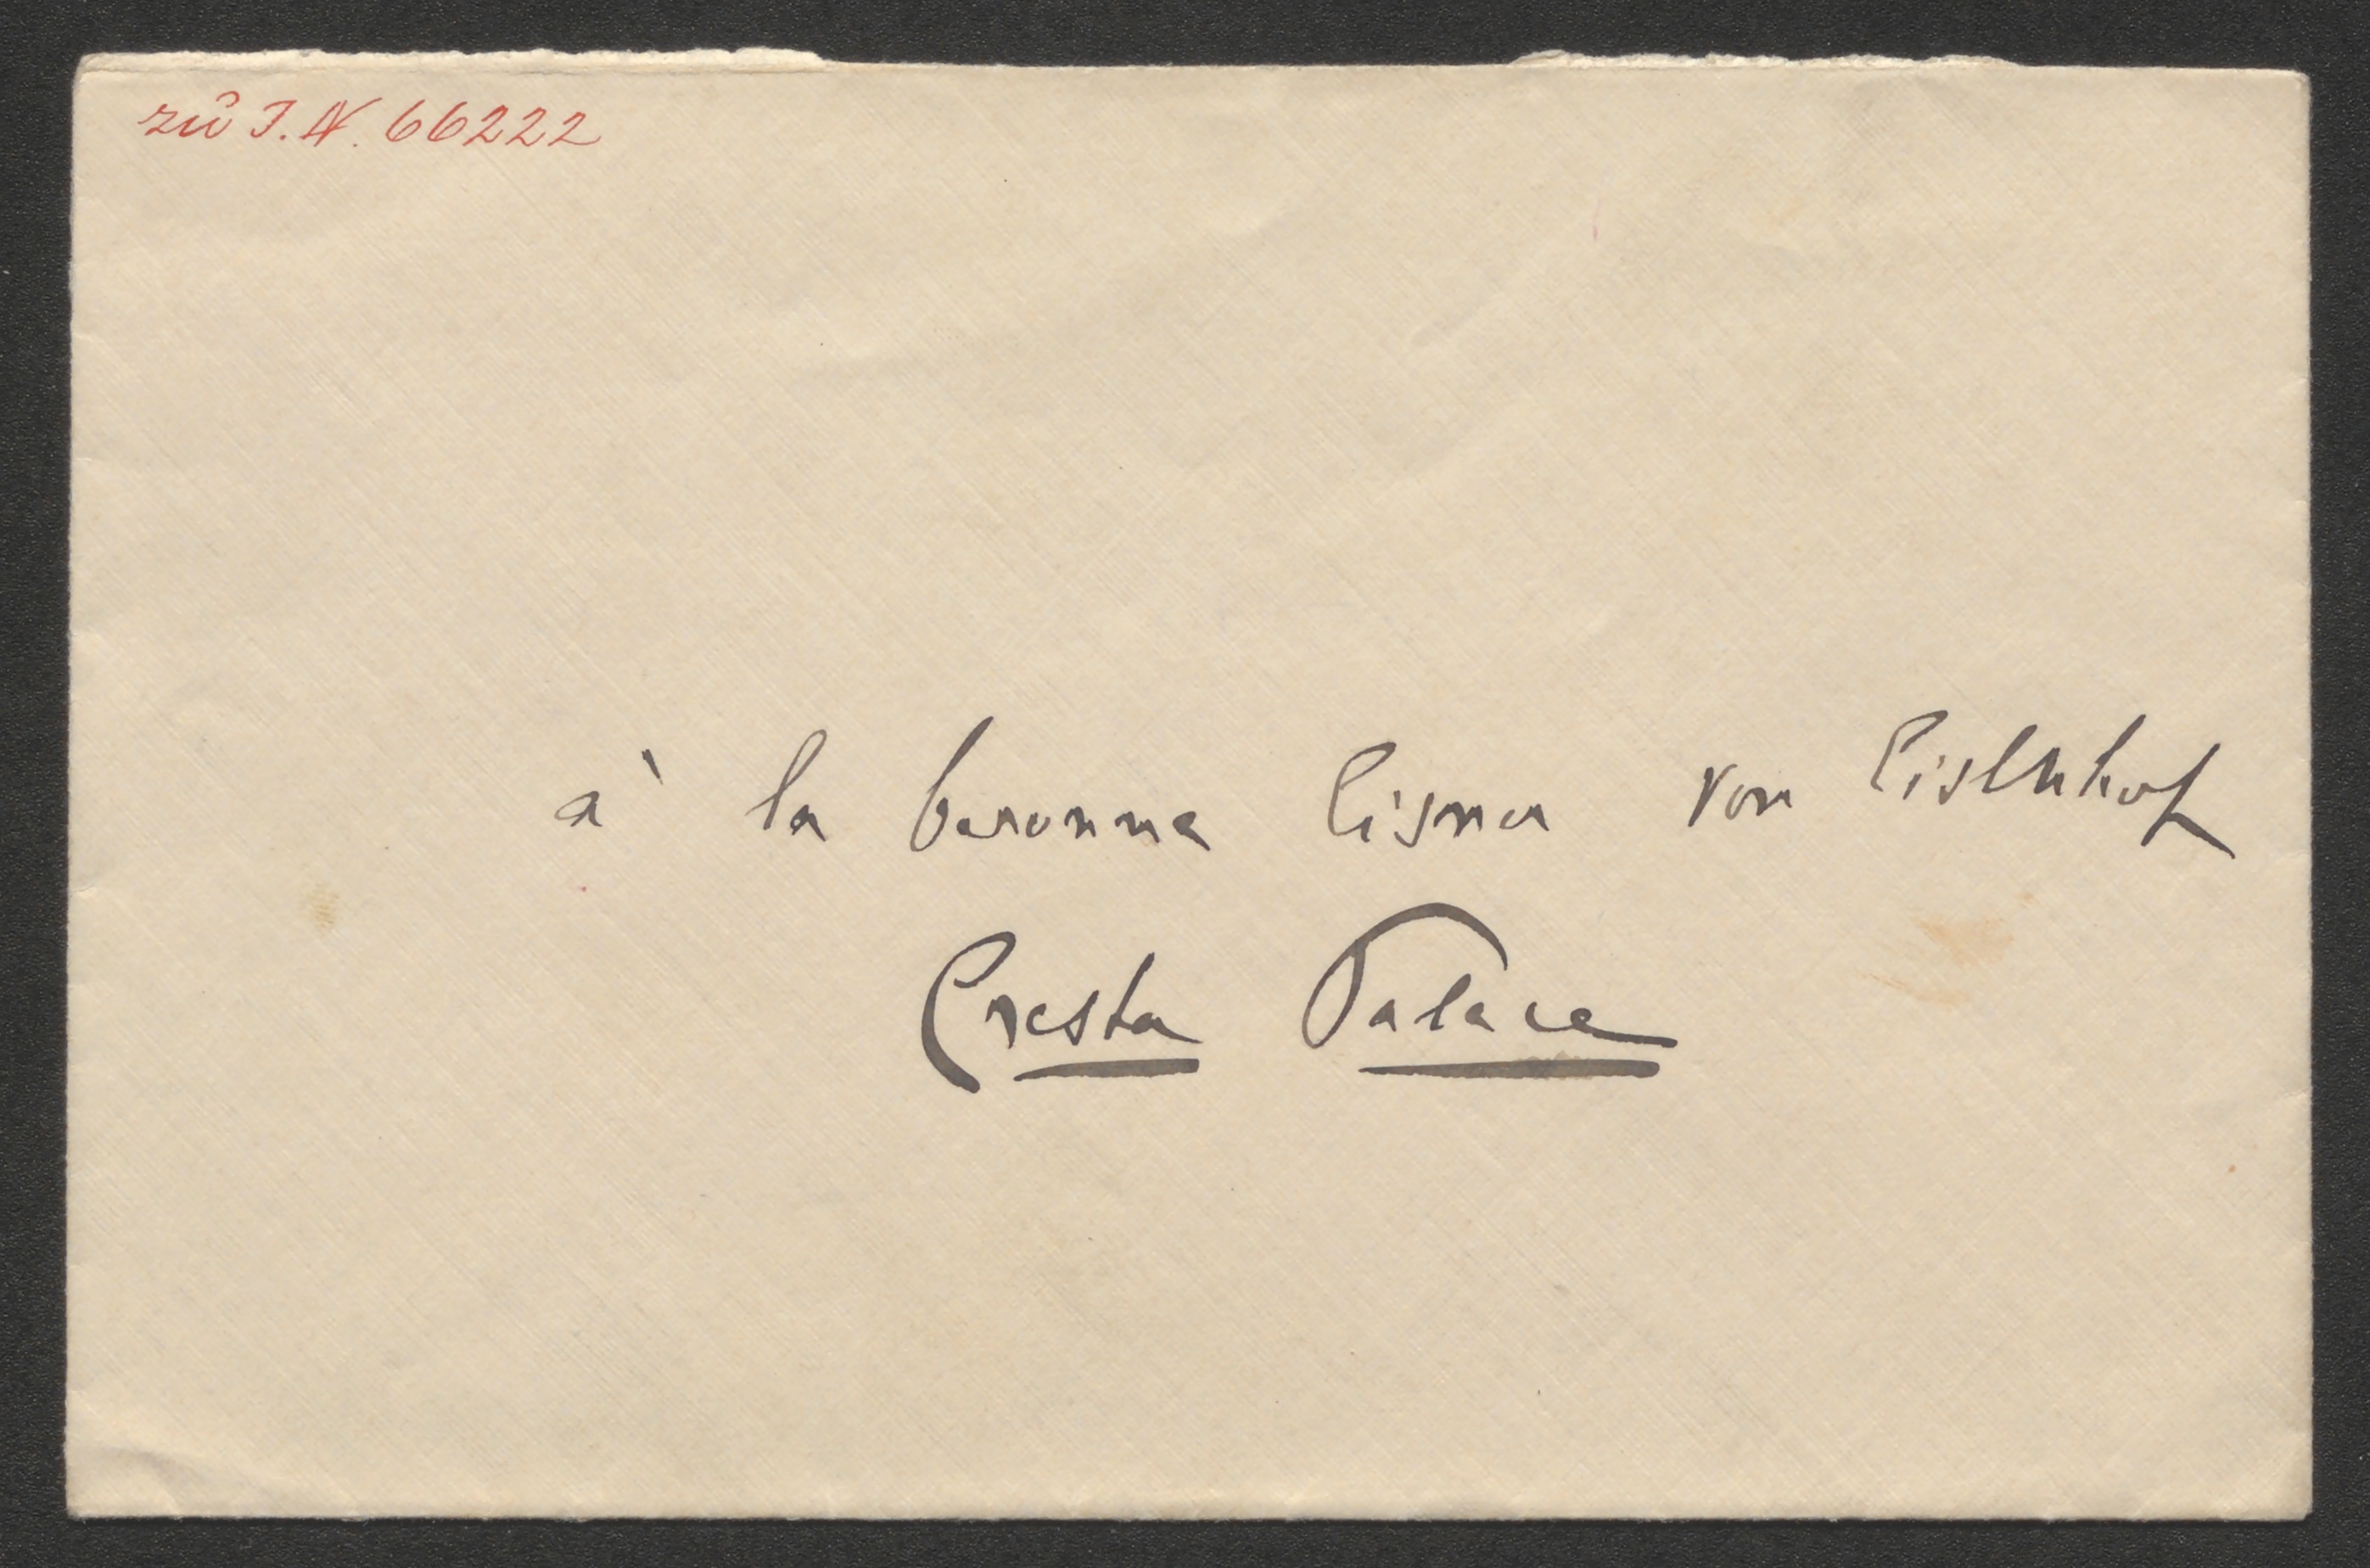 zu I.N. 66222
à la baronne Eisner von Eisenhof
Cresta Palace